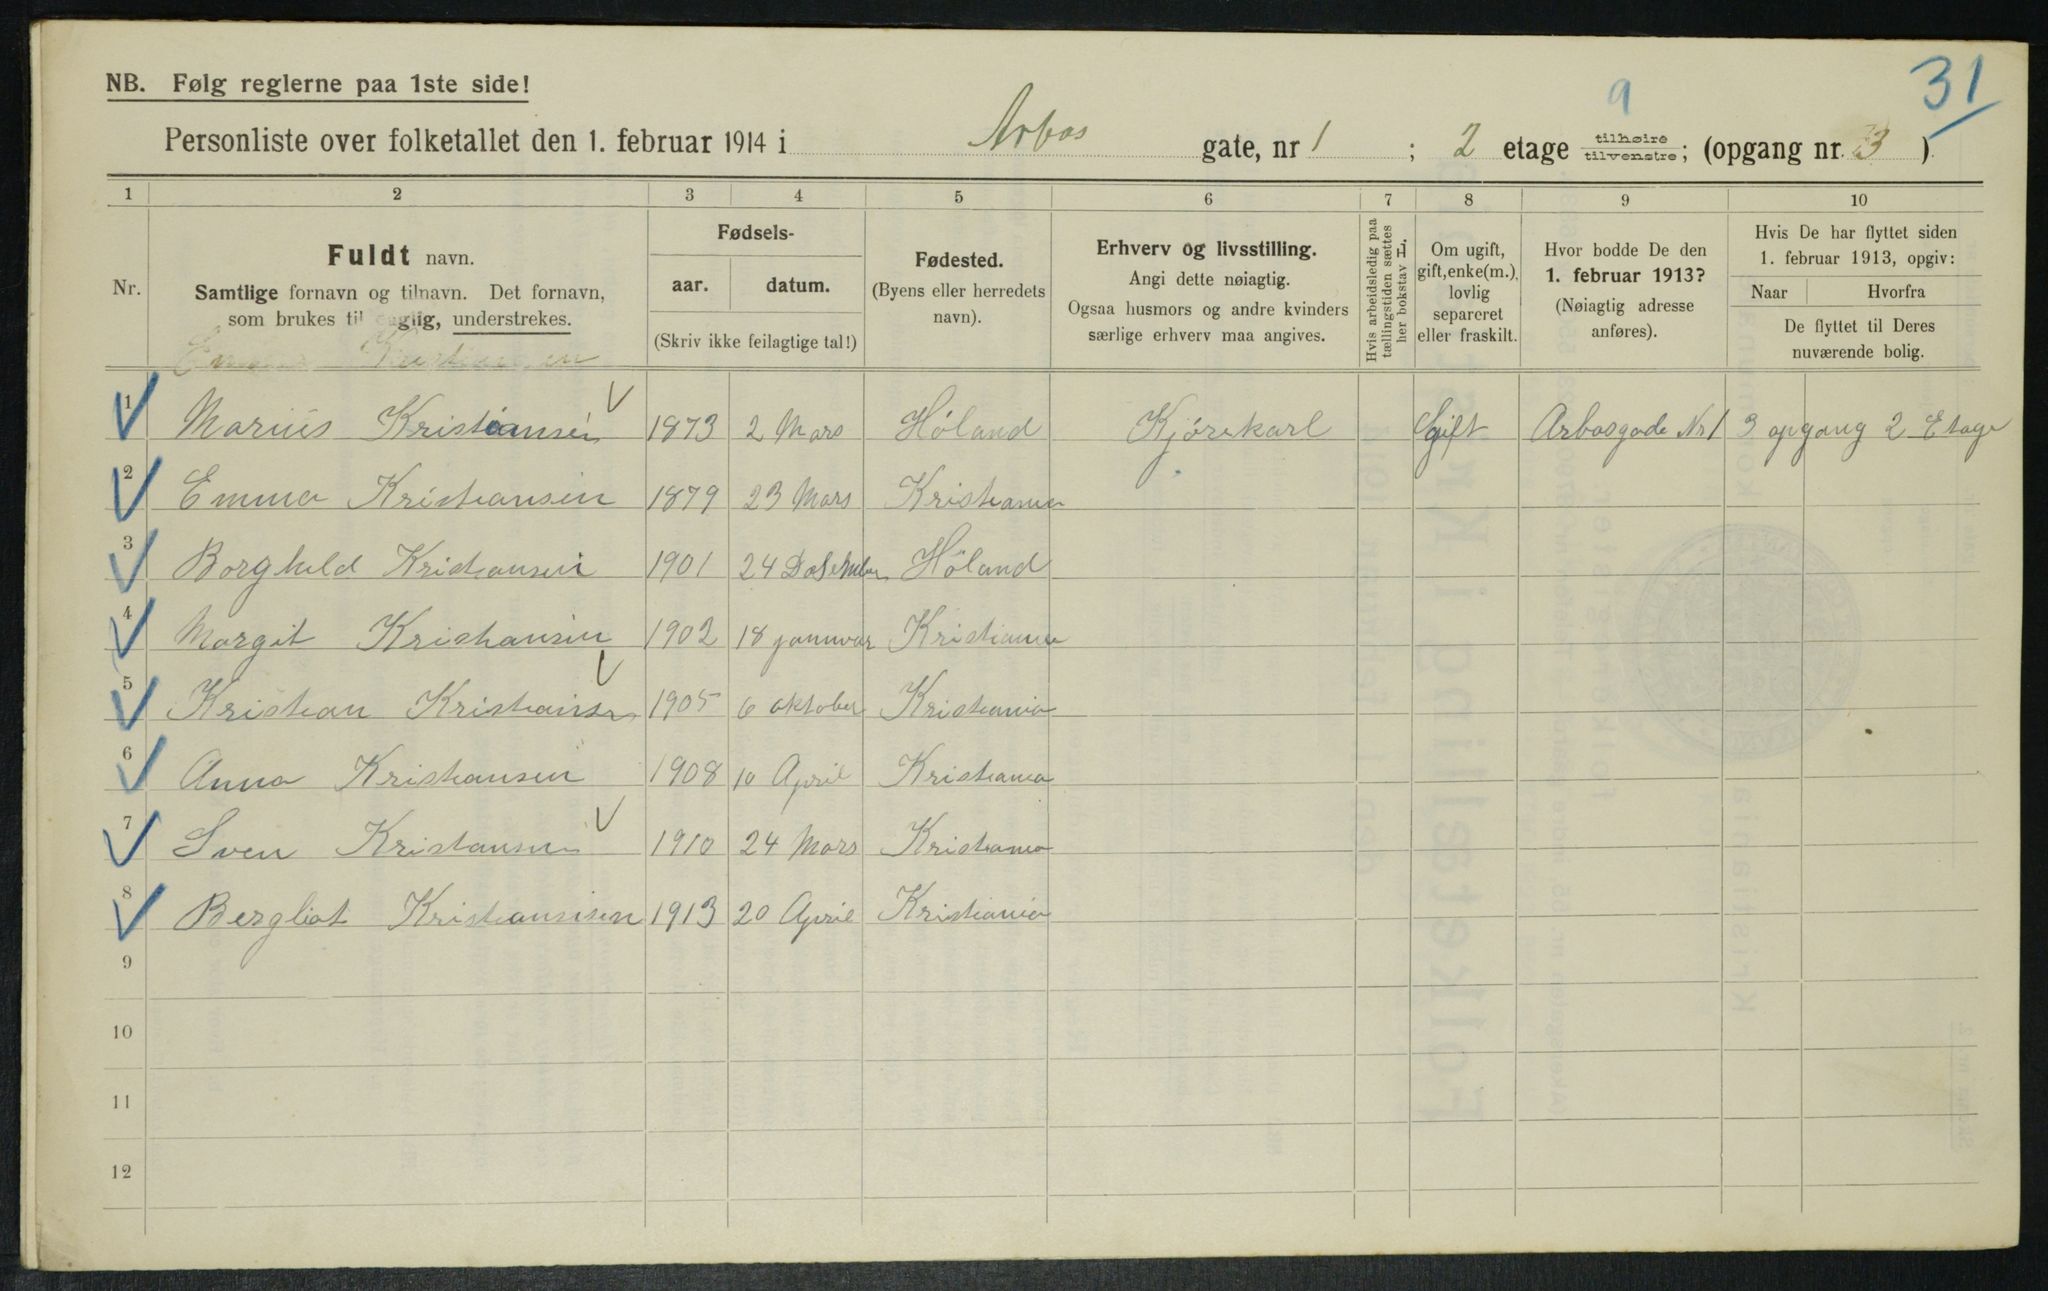 31
NB. Følg reglerne paa 1ste side!
9
Personliste over folketallet den 1. februar 1914 i Arbos gate, nr 1 ; 2 etage tilhøire tilvenstre; (opgang nr. 3 ).
1 2 3 4 5 6 7 8 9 10
Nr.
Fuldt navn.
Samtlige fornavn og tilnavn. Det fornavn,
som brukes til daglig, understrekes.
Fødsels-
aar. datum.
(Skriv ikke feilagtige tal!)
Fødested.
(Byens eller herredets
navn).
Erhverv og livsstilling.
Angi dette nøiagtig.
Ogsaa husmors og andre kvinders
særlige erhverv maa angives.
Hvis arbeidsledig paa
tællingstiden sættes
her bokstav L.
Om ugift,
gift, enke(m.),
lovlig
separeret
eller fraskilt.
Hvor bodde De den
1. februar 1913?
(Nøiagtig adresse
anføres).
Hvis De har flyttet siden
1. februar 1913, opgiv:
Naar Hvorfra
De flyttet til Deres
nuværende bolig.
1 Marius Kristiansen 1873 2 Mars Høland Kjørekarl gift Arbosgade Nr 1 3 opgang 2 Etage
2 Emma Kristiansen 1879 23 Mars Kristiania
3 Borghild Kristiansen 1901 24 Høland
4 Margit Kristiansen 1902 18 januar Kristiania
5 Kristian Kristiansen 1905 6 oktober Kristiania
6 Anna Kristiansen 1908 10 April Kristiania
7 Sven Kristansen 1910 24 Mars Kristiania
8 Bergliot Kristiansen 1913 20 April Kristiania
9
10
11
12